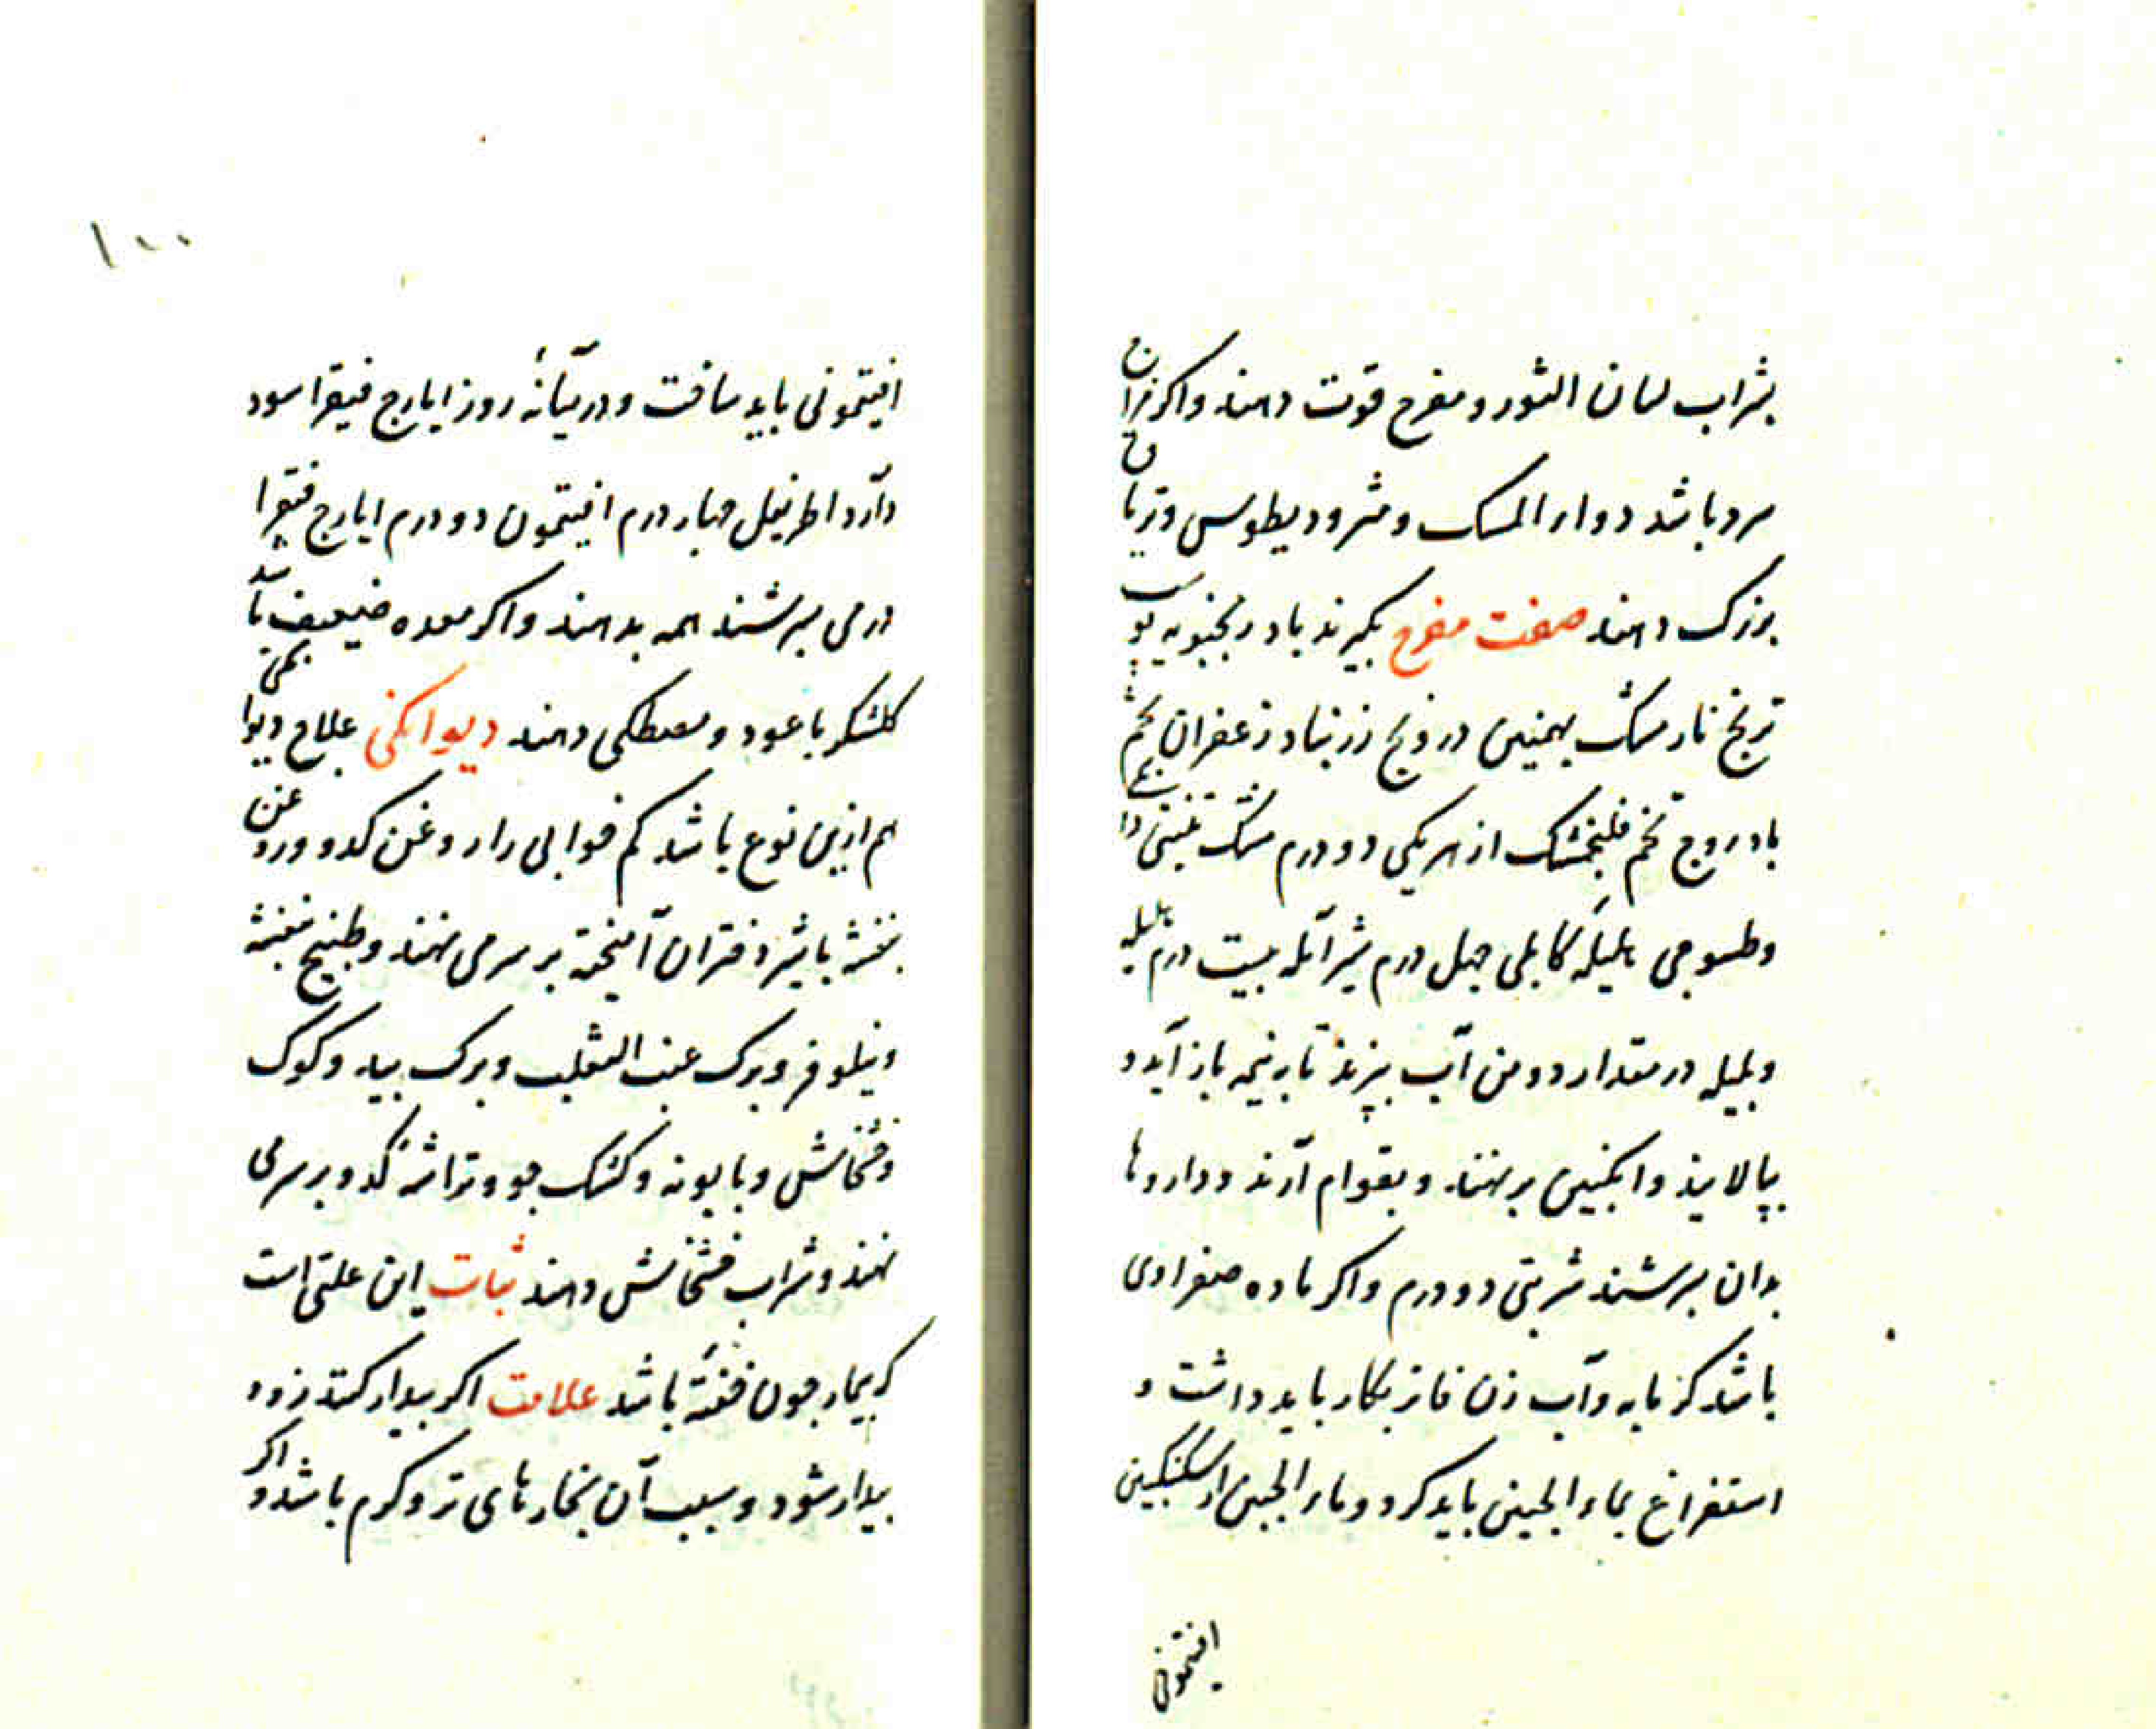 بشراب لسان الثور و مفرح قوت دهند و اکر مزاج
سرد باشد دواء المسک و مثرودیطوس و تریاق
بزرک دهند صفت مفرح بکیرند بادرنجبویه پوست
ترنج نارمشک بهمنین درونج زرنباد زعفران تخم
بادروج تخم فلنجمشک از هر یکی دو درم مشک تبتی دانکی
و طسوجی هلیله کابلی چهل درم شیر آمله بیست درم هلیله
و بلیله در مقدار دو من آب بپزند تا به نیمه باز آید و
بپالایند و انکبین بر نهند و بقوام آرند و داروها
بدان بسرشند شربتی دو درم و اکر ماده صفراوی
باشد کرمابه و آب زن فاتر بکار باید داشت و
استفراغ بماء الجبن باید کرد و ماء الجبن از سکنکبین
افتیمونی
۱۰۰
افتیمونی باید ساخت و در میانهٔ روز ایارج فیقرا سود
دارد اطریفل چهار درم افتیمون دو درم ایارج فیقرا
درمی بسرشند همه بدهند و اکر معده ضعیف باشد
کلشکر با عود و مصطکی دهند دیوانکی علاج دیوانکی
هم ازین نوع باشد کم خوابی را روغن کدو و روغن
بنفشه با شیر دختران آمیخته بر سر می نهند و طبیخ بنفشه
و نیلوفر و برک عنب الثعلب و برک بید و کوک
و خشخاش و بابونه و کشک جو و تراشه کدو بر سر می
نهند و شراب خشخاش دهند ثبات این علتی است
که بیمار چون خفته باشد علامت اکر بیدار کنند زود
بیدار شود و سبب آن بخارهای تر و کرم باشد و اکر